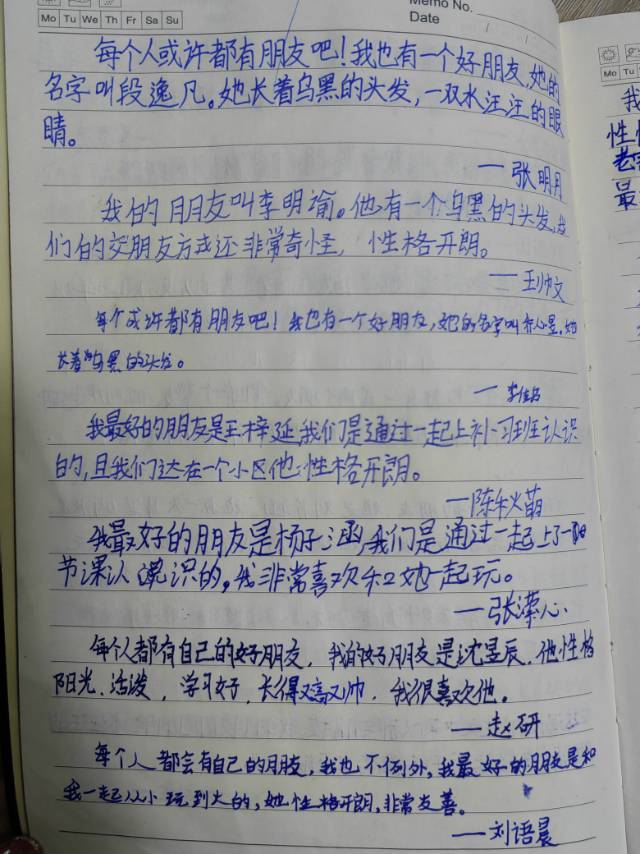 Mo Tu We Th Fr Sa Su
Memo No.
Date
每个人或许都有朋友吧！我也有一个好朋友,她的
名字叫段逸凡。她长着乌黑的头发，一双水汪汪的眼
睛。
—张明月
我的朋友叫李明瑜。他有一个乌黑的头发,我
们的交朋友方式还非常奇怪，性格开朗。
—王帅文
每个或许都有朋友吧！我也有一个好朋友，她的名字叫
长着乌黑的头发。
我最好的朋友是王梓延,我们是通过一起上补习班认识
的,且我们还在一个小区他性格开朗。
—陈秋萌
我最好的朋友是杨子涵,我们是通过一起上了一
节课认识的,我非常喜欢和她一起玩。
—张漾心
每个人都有自己的好朋友，我的好朋友是沈昱辰.他性格
阳光.活泼，学习好.长得又高又帅.我很喜欢他。
—赵研
每个人都会有自己的朋友，我也不例外,我最好的朋友是和
我一起从小玩到大的,她性格开朗,非常友善。
—刘语晨
Mo Tu
我
性
老
最